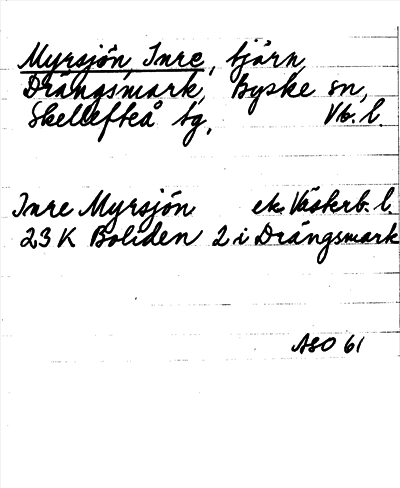 Myrsjön, Inre, tjärn,
Drängsmark, Byske sn,
Skellefteå tg, Vb. l.
Inre Myrsjön ek. Västerb. l.
23 K Boliden 2 i Drängsmark
ASO 61